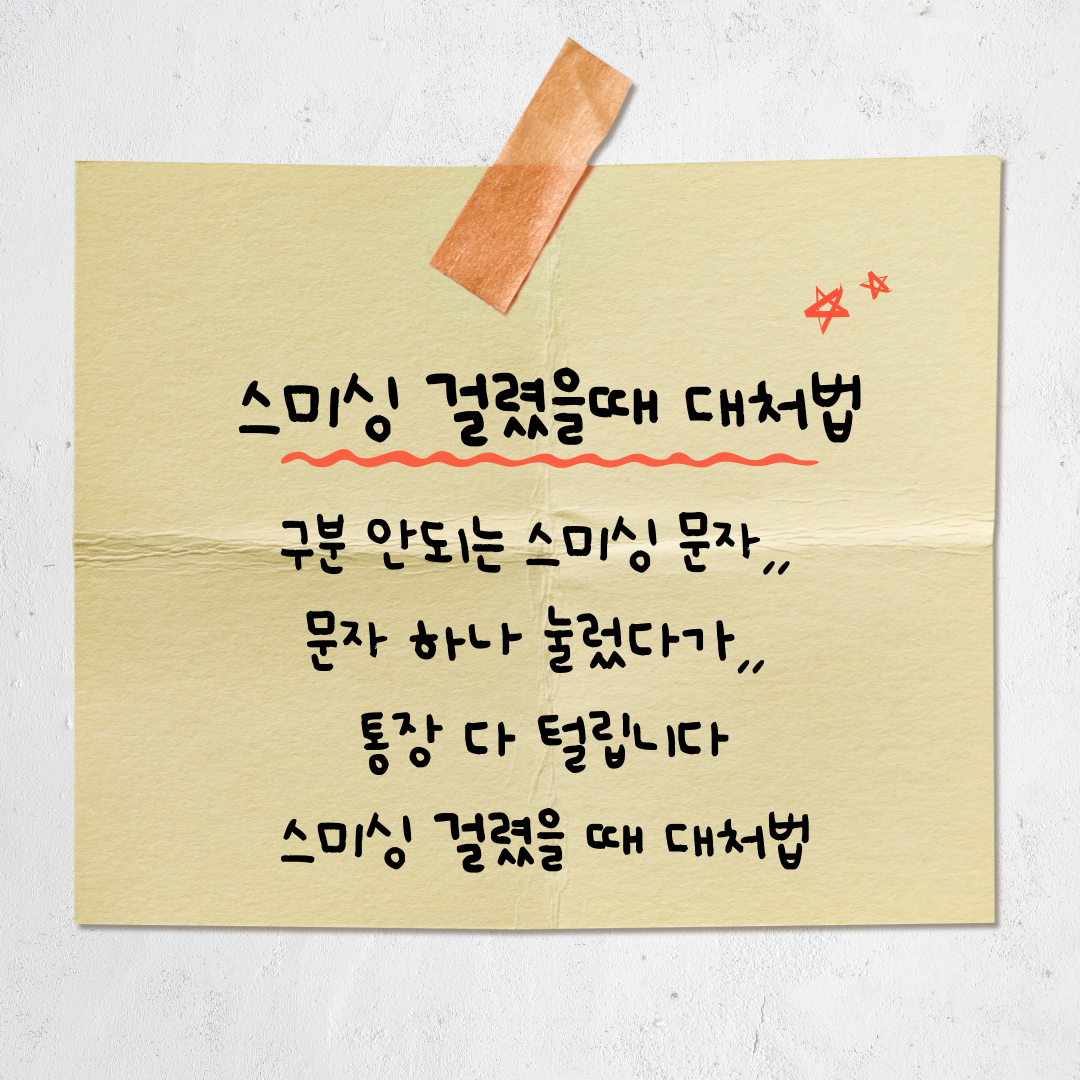 스미싱 걸렸을때 대처법
구분 안되는 스미싱 문자,,
문자 하나 눌렀다가,,
통장 다 털립니다
스미싱 걸렸을 때 대처법